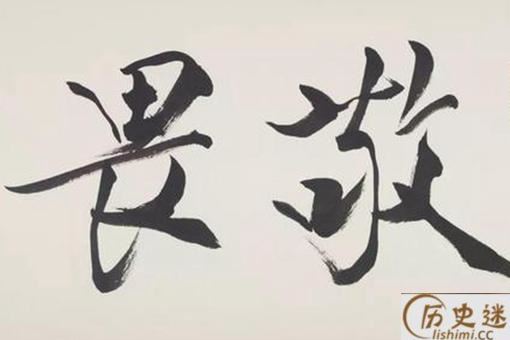 敬畏
历史迷
lishimi.CC